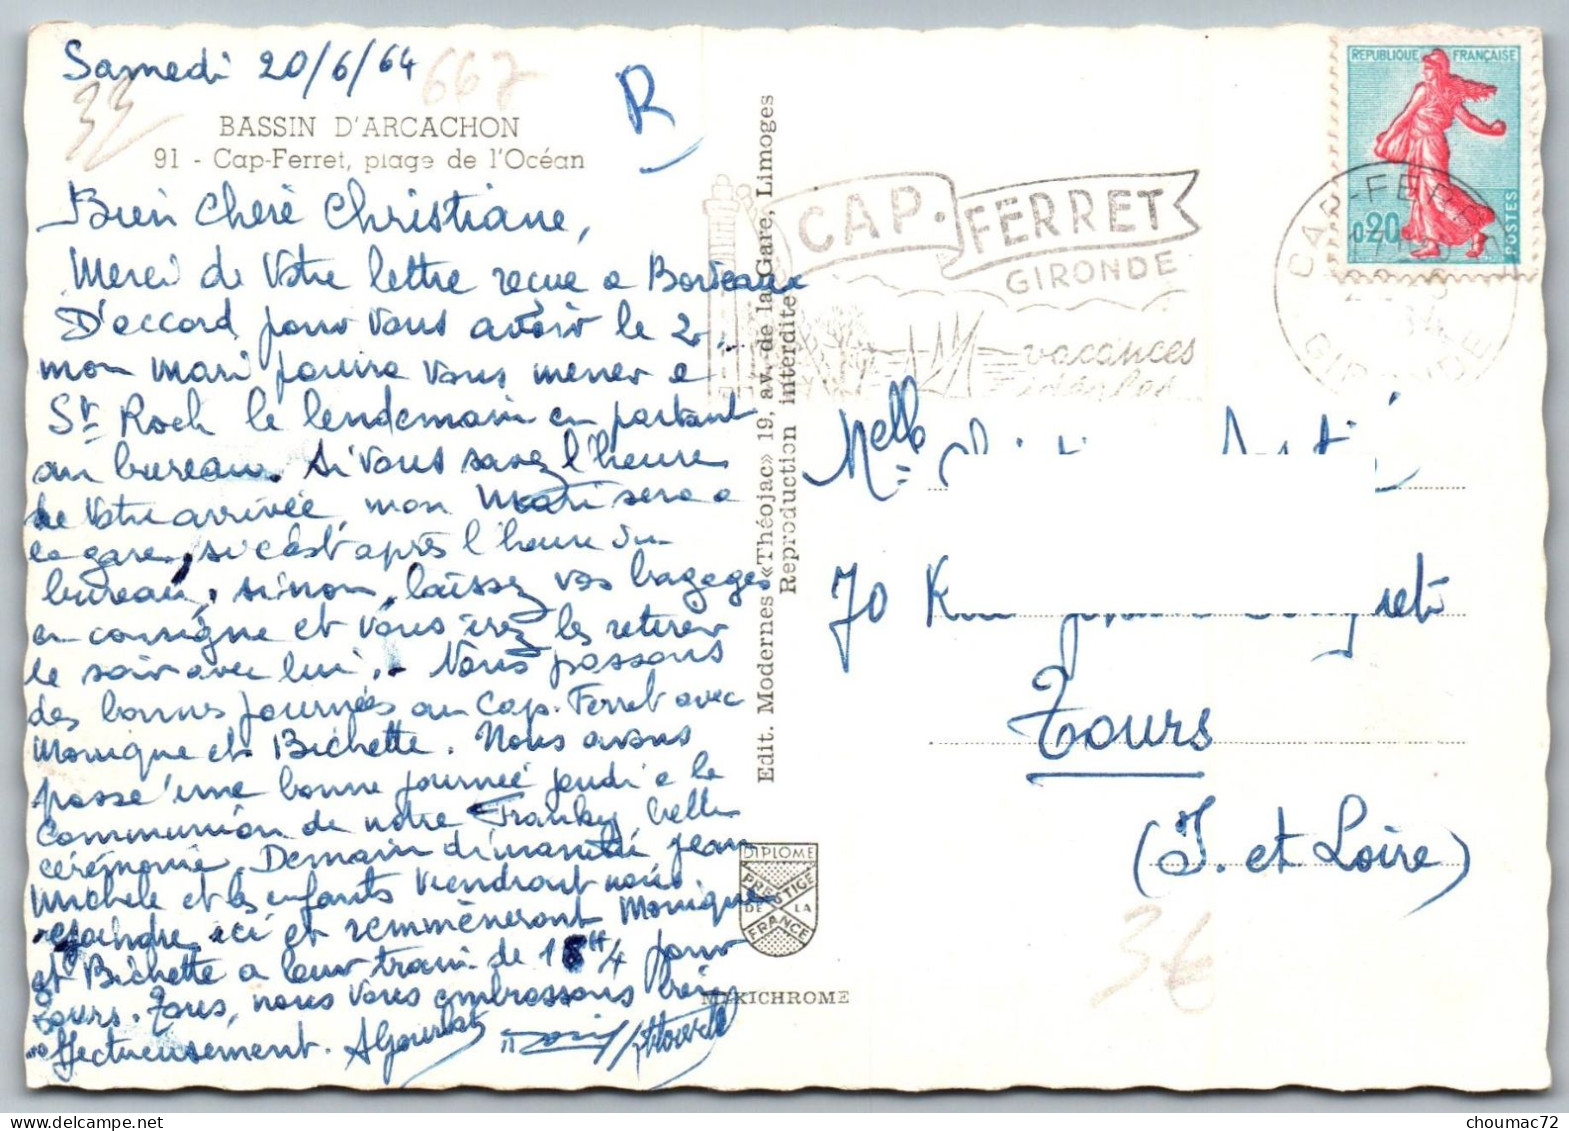 Samedi 20/6/64
667
33
R
BASSIN D'ARCACHON
91 - Cap-Ferret, plage de l'Océan
Bien Chère Christiane,
Merci de Votre lettre reçue a Bordeaux
D'accord pour vous avoir le 2.
mon mari pourra vous mener a
St Roch le lendemain en partant
au bureau. Si Vous savez l'heure
de Votre arrivée, mon Mari sera a
la gare, si c'est après l'heure du
bureau, sinon, laissez vos bagages
en consigne et Vous irez les retirer
le soir avec lui. Nous passons
des bonnes journées au Cap-Ferret avec
Monique et Bichette. Nous avons
passé une bonne journée jeudi a la
Communion de notre Franky, belle
cérémonie. Demain dimanche Jean
Michele et les enfants viendront nous
rejoindre ici et remmèneront Monique
et Bichette a leur train de 18H/4 pour
Tours. Tous, nous Vous embrassons bien
affectueusement.
Edit. Modernes «Théojac» 19, av. de la Gare, Limoges
Reproduction interdite
DIPLOME
PRESTIGE
DE LA
FRANCE
MEXICHROME
CAP-FERRET
GIRONDE
vacances
idéales
REPUBLIQUE FRANÇAISE
0,20
POSTES
CAP-FERRET
GIRONDE
Melle
70
Tours
(I. et Loire)
3€
choumac72